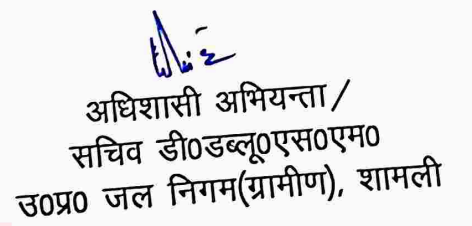 अधिशासी अभियन्ता/
सचिव डी0डब्लू0एस0एम0
उ0प्र0 जल निगम(ग्रामीण), शामली